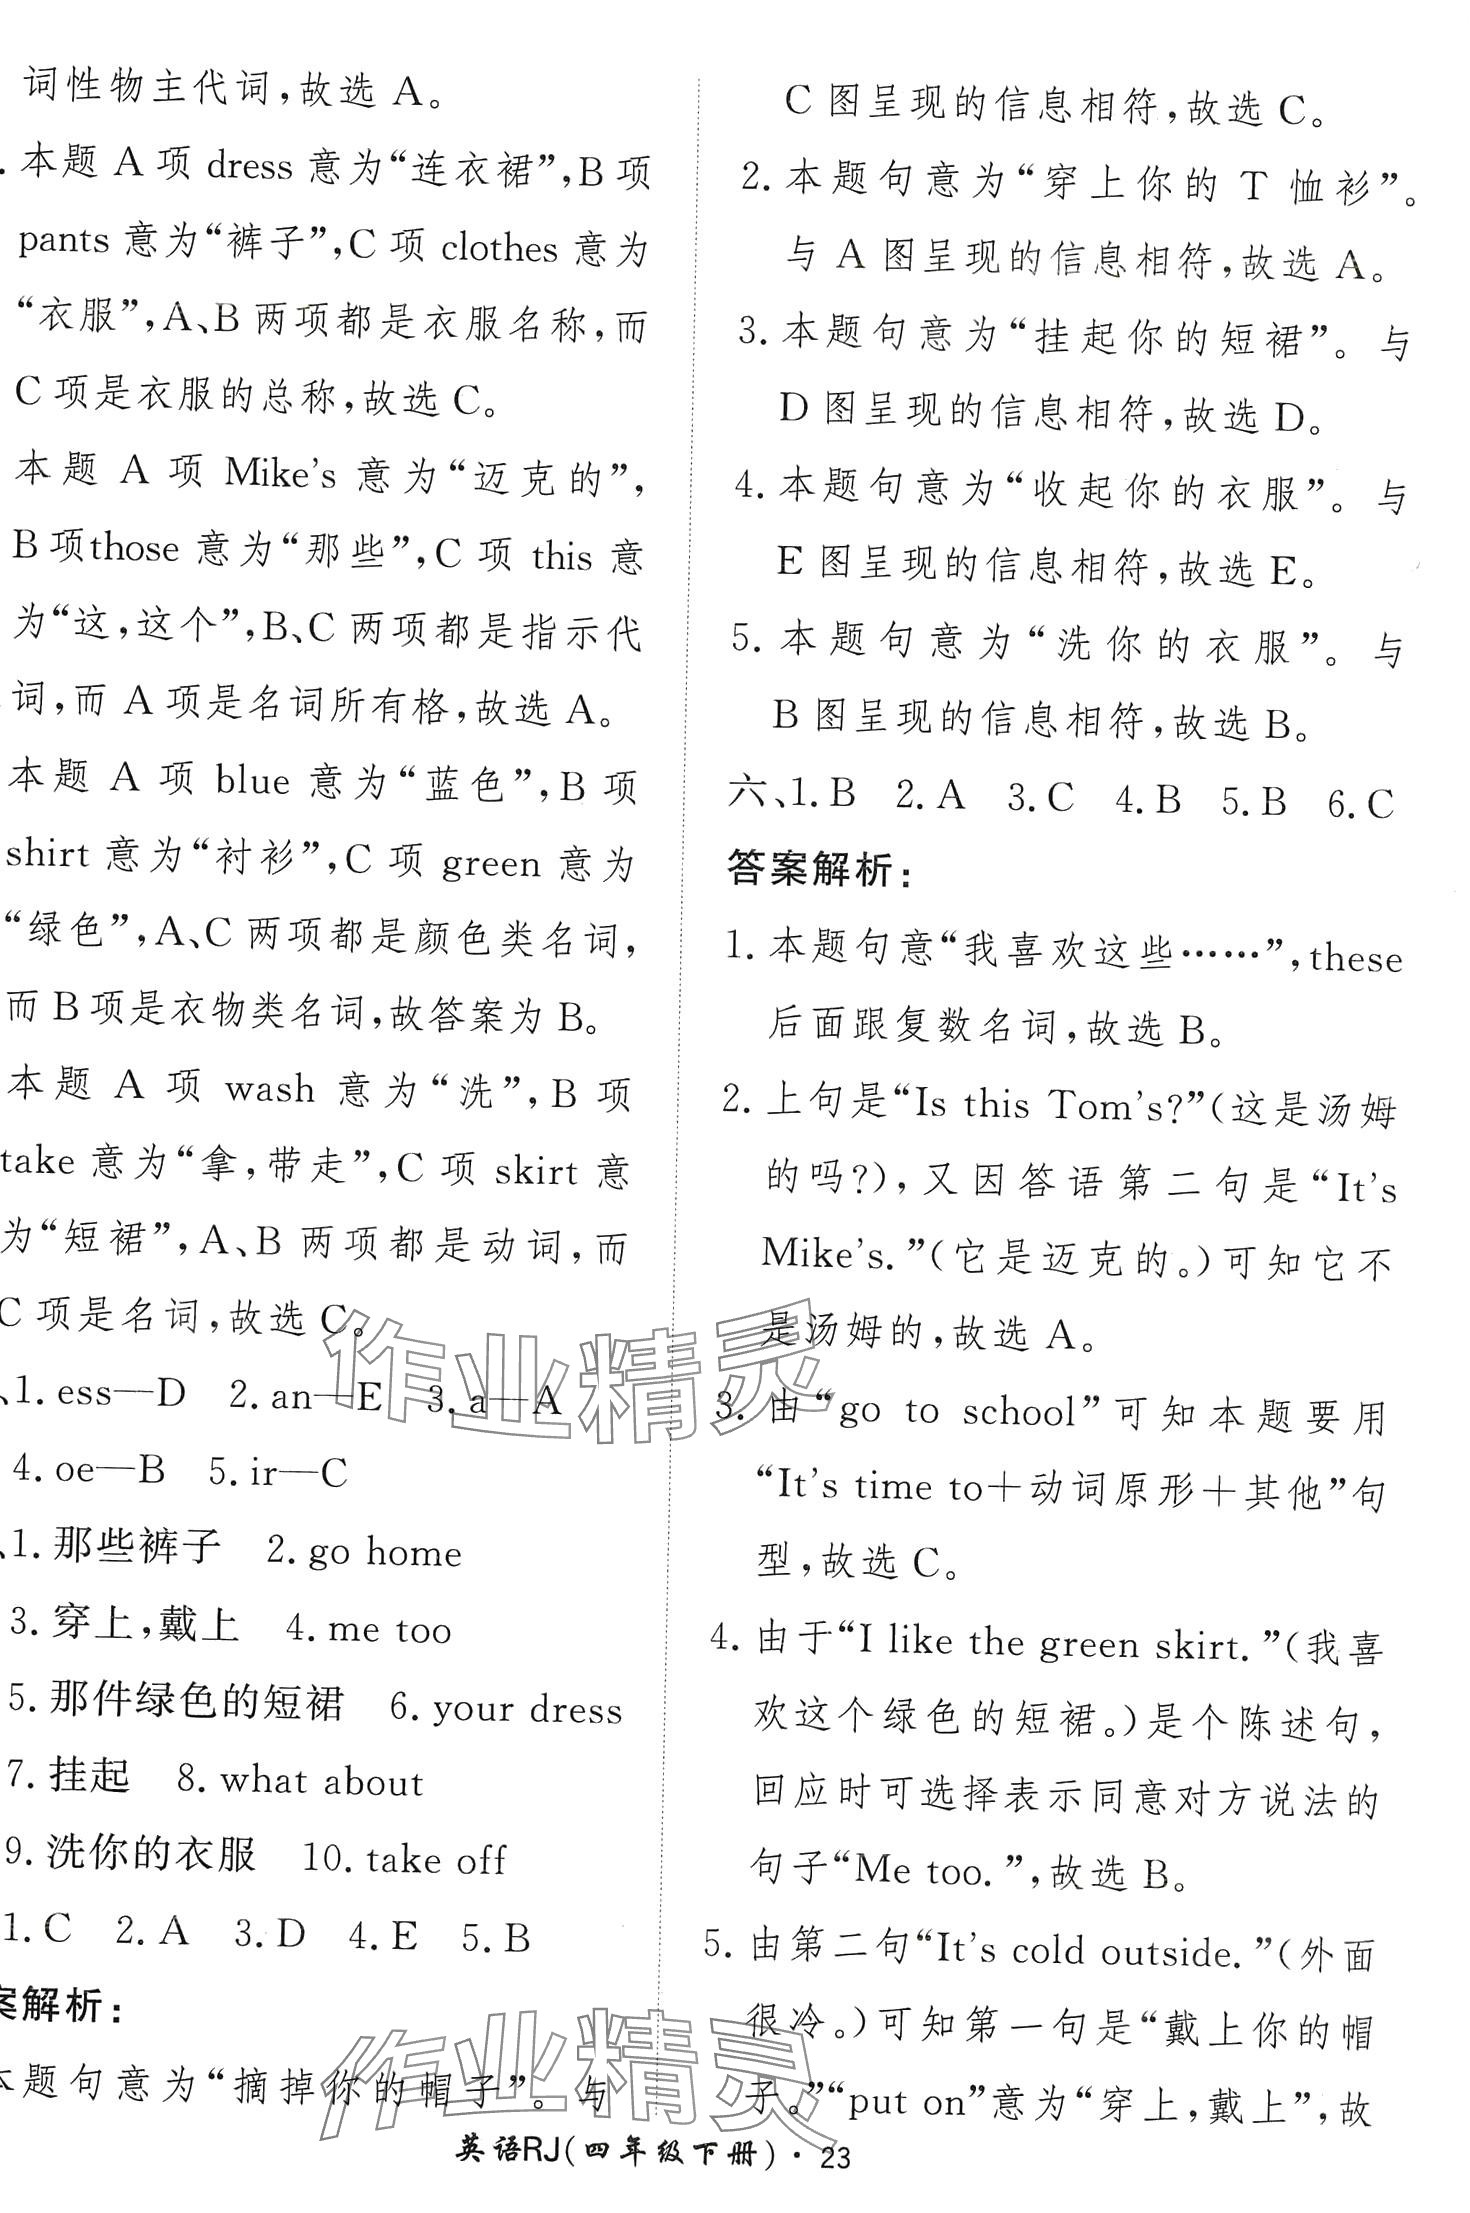 词性物主代词，故选 A。
. 本题 A 项 dress 意为“连衣裙”，B 项
pants 意为“裤子”，C 项 clothes 意为
“衣服”，A、B 两项都是衣服名称，而
C 项是衣服的总称，故选 C。
本题 A 项 Mike's 意为“迈克的”，
B 项those 意为“那些”，C 项 this 意
为“这，这个”，B、C 两项都是指示代
词，而 A 项是名词所有格，故选 A。
本题 A 项 blue 意为“蓝色”，B 项
shirt 意为“衬衫”，C 项 green 意为
“绿色”，A、C 两项都是颜色类名词，
而 B 项是衣物类名词，故答案为 B。
本题 A 项 wash 意为“洗”，B 项
take 意为“拿，带走”，C 项 skirt 意
为“短裙”，A、B 两项都是动词，而
C 项是名词，故选 C。
、1. ess—D 2. an—E 3. a—A
4. oe—B 5. ir—C
、1. 那些裤子 2. go home
3. 穿上，戴上 4. me too
5. 那件绿色的短裙 6. your dress
7. 挂起 8. what about
9. 洗你的衣服 10. take off
1. C 2. A 3. D 4. E 5. B
案解析：
本题句意为“摘掉你的帽子”。与
C 图呈现的信息相符，故选 C。
2. 本题句意为“穿上你的 T 恤衫”。
与 A 图呈现的信息相符，故选 A。
3. 本题句意为“挂起你的短裙”。与
D 图呈现的信息相符，故选 D。
4. 本题句意为“收起你的衣服”。与
E 图呈现的信息相符，故选 E。
5. 本题句意为“洗你的衣服”。与
B 图呈现的信息相符，故选 B。
六、1. B 2. A 3. C 4. B 5. B 6. C
答案解析：
1. 本题句意“我喜欢这些……”，these
后面跟复数名词，故选 B。
2. 上句是“Is this Tom's?”（这是汤姆
的吗？），又因答语第二句是“It's
Mike's.”（它是迈克的。）可知它不
是汤姆的，故选 A。
3. 由“go to school”可知本题要用
“It's time to＋动词原形＋其他”句
型，故选 C。
4. 由于“I like the green skirt.”（我喜
欢这个绿色的短裙。）是个陈述句，
回应时可选择表示同意对方说法的
句子“Me too.”，故选 B。
5. 由第二句“It's cold outside.”（外面
很冷。）可知第一句是“戴上你的帽
子。”“put on”意为“穿上，戴上”，故
英语RJ(四年级下册)·23
作业精灵
作业精灵